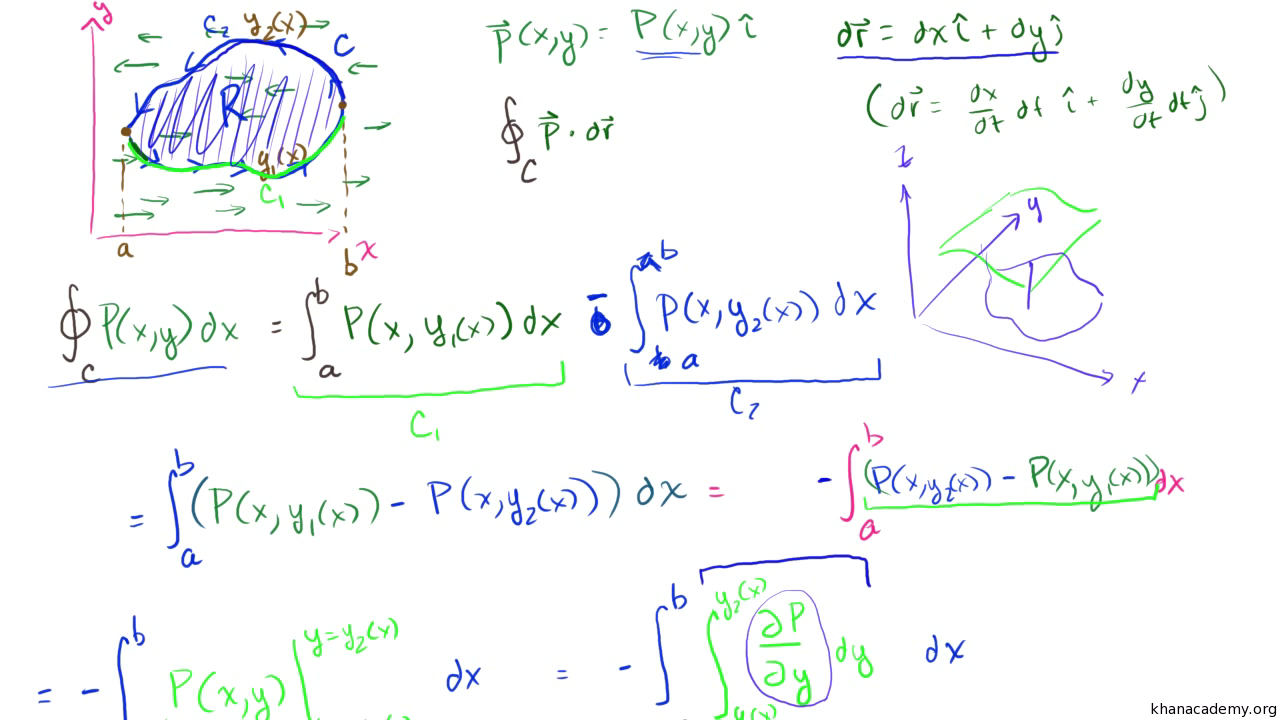 y
C₂ y₂(x)
C
R
y₁(x)
C₁
a
b
x
P⃗(x,y) = P(x,y) î
dr⃗ = dx î + dy ĵ
(dr⃗ = dx/dt dt î + dy/dt dt ĵ)
∮_C P⃗ · dr⃗
z
y
x
∮_C P(x,y) dx = ∫_a^b P(x, y₁(x)) dx - ∫_a^b P(x, y₂(x)) dx
C₁
C₂
= ∫_a^b (P(x, y₁(x)) - P(x, y₂(x))) dx = - ∫_a^b (P(x, y₂(x)) - P(x, y₁(x))) dx
= - ∫^b P(x,y) |^{y=y₂(x)} dx = - ∫^b ∫^{y₂(x)} ∂P/∂y dy dx
khanacademy.org